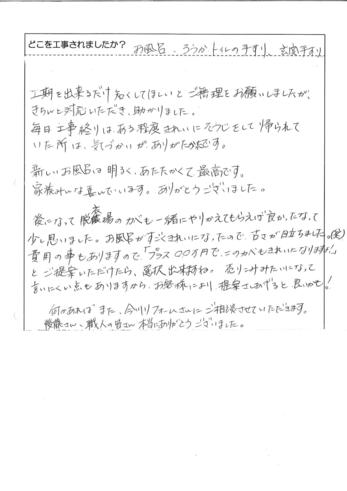 どこを工事されましたか？ お風呂、ろうか、トイレの手すり、玄関手すり
工期を出来るだけ短くしてほしいとご無理をお願いしましたが、
きちんと対応いただき、助かりました。
毎日工事終りは、ある程度きれいにそうじをして帰られて
いた所は、気づかいが、ありがたかたです。
新しいお風呂は明るく、あたたかくて最高です。
家族みんな喜んでいます。ありがとうございました。
後になって脱衣場のかべも一緒にやりかえてもらえば良かったなって
少し思いました。お風呂がすごくきれいになったので、古さが目立ちました。(笑)
費用の事もありますので、「プラス〇〇万円で、このかべもきれいになりますよ!」
とご提案いただけたら、選択出来ますね。売りこみみたいになって
言いにくい点もありますから、お客様により提案さしあげると良いかも!
何かあればまた、今川リフォームさんにご相談させていただきます。
後藤さん、職人の皆さん本当にありがとうございました。